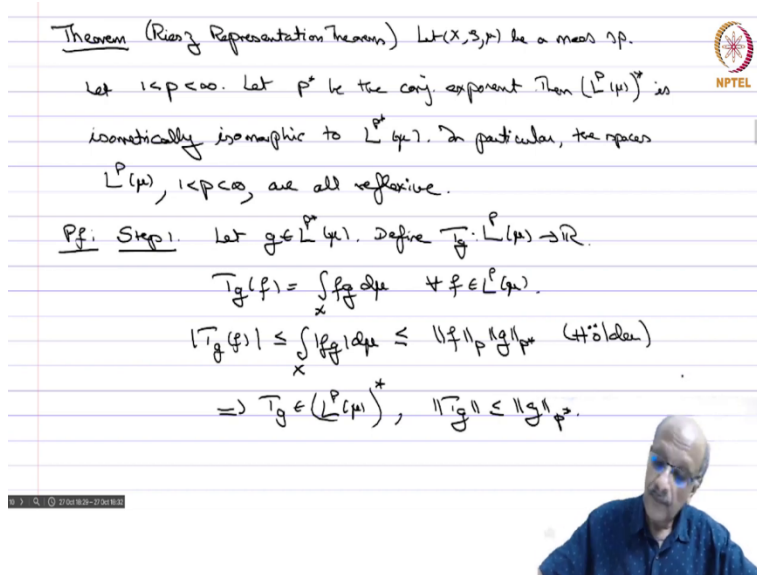 Theorem (Riesz Representation Theorem) Let (X, S, μ) be a meas sp.
NPTEL
Let 1<p<∞. Let p* be the conj. exponent. Then (L^p(μ))* is
isometrically isomorphic to L^p*(μ). In particular, the spaces
L^p(μ), 1<p<∞, are all reflexive.
Pf: Step 1. Let g ∈ L^p*(μ). Define T_g : L^p(μ) → ℝ.
T_g(f) = ∫_X fg dμ ∀ f ∈ L^p(μ).
|T_g(f)| ≤ ∫_X |fg| dμ ≤ ‖f‖_p ‖g‖_p* (Hölder)
⇒ T_g ∈ (L^p(μ))*, ‖T_g‖ ≤ ‖g‖_p*.
27 Oct 18:29–27 Oct 18:32